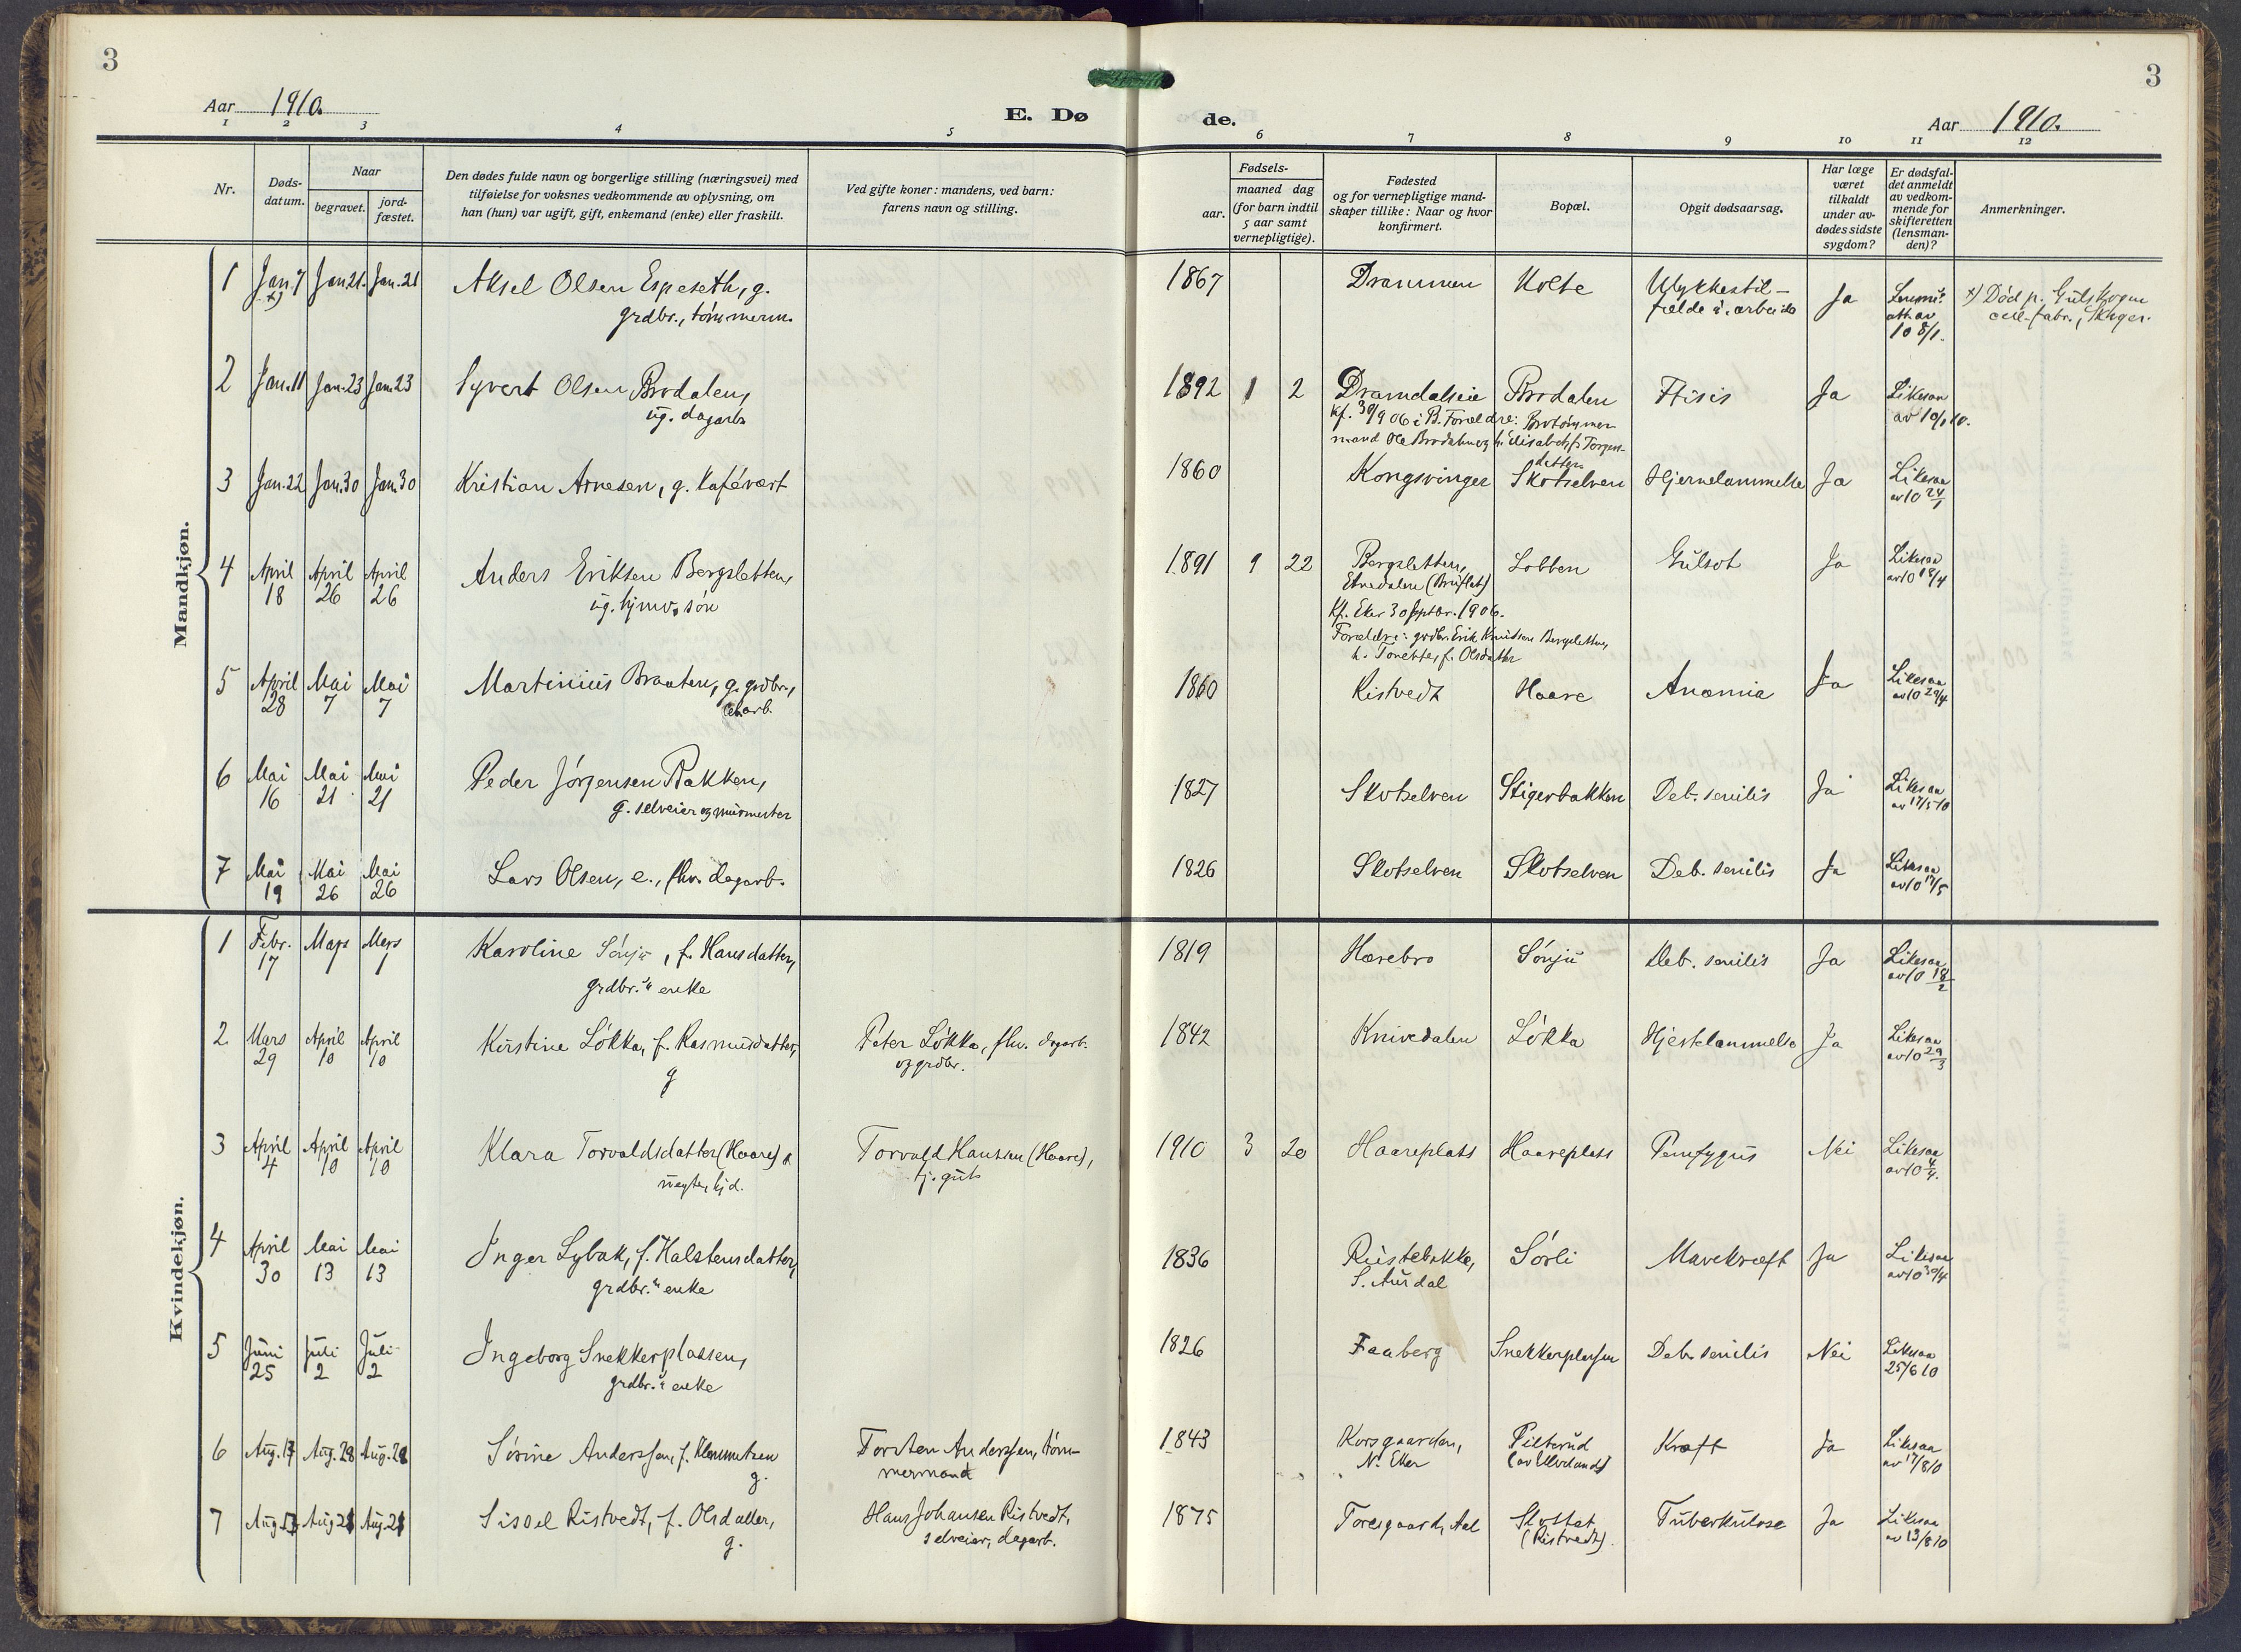 3
3
Aar 1910.
E. Dø
de.
Aar 1910.
1 2 3 4 5 6 7 8 9 10 11 12
Nr.
Døds-
datum.
Naar
begravet.
jord-
fæstet.
Den dødes fulde navn og borgerlige stilling (næringsvei) med
tilføielse for voksnes vedkommende av oplysning, om
han (hun) var ugift, gift, enkemand (enke) eller fraskilt.
Ved gifte koner: mandens, ved barn:
farens navn og stilling.
Fødsels-
aar.
maaned dag
(for barn indtil
5 aar samt
vernepligtige).
Fødested
og for vernepligtige mand-
skaper tillike: Naar og hvor
konfirmert.
Bopæl.
Opgit dødsaarsag.
Har læge
været
tilkaldt
under av-
dødes sidste
sygdom?
Er dødsfal-
det anmeldt
av vedkom-
mende for
skifteretten
(lensman-
den)?
Anmerkninger.
Mandkjøn.
1 Jan. 7 Jan 21. Jan. 21 Aksel Olsen Espeseth, g. 1867 Drammen Holte Ulykkestil-
x) grdbr., tømmerm. fælde i arbeide Ja
att. av
10 8/1.
x) Død p. Gulskogen
cell-fabr., Skoger.
2 Jan. 11 Jan. 23 Jan. 23 Syvert Olsen Brodalen, 1892 1 2 Dramdalseie Brodalen Ftisis Ja Likesaa
ug. dagarb av 10/1 10.
Kf. 30/9 06 i B. Forældre: Brotømmer-
mand Ole Brodalen og h. Elisabeth f. Torgers-
datter
3 Jan. 22 Jan. 30 Jan. 30 Kristian Arnesen, g. kafévert 1860 Kongsvinger Skotselven Hjernelammelse Ja Likesaa
av 10 24/1
4 April April April Anders Eriksen Bergsletten, 1891 9 22 Bergsletten, Lobben Gulsot Ja Likesaa
18 26 26 ug. hjmv. søn Etnedalen (Bruflat) av 10 18/4
Kf. Eker 30 septbr. 1906.
Forældre: grdbr. Erik Knudsen Bergsletten,
h. Torette, f. Olsdatter
5 April Mai Mai Martinius Braaten, g. grdbr., 1860 Ristvedt Haare Anæmia Ja Likesaa
28 7 7 cel.arb. av 10 29/4
6 Mai Mai Mai Peder Jørgensen Bakken, 1827 Skotselven Stigerbakken Deb. senilis Ja Likesaa
16 21 21 g. selveier og murmester av 17/5 10
7 Mai Mai Mai Lars Olsen, e., fhv. dagarb. 1826 Skotselven Skotselven Deb. senilis Ja Likesaa
19 26 26 av 10 19/5
Kvindekjøn.
1 Febr. Mars Mars Karoline Sønju, f. Hansdatter, 1819 Hærebro Sønju Deb. senilis Ja Likesaa
17 1 1 grdbr.'s enke av 10 18/2
2 Mars April April Kirstine Løkka, f. Rasmusdatter, Peter Løkka, fhv. dagarb. 1842 Knivedalen Løkka Hjertelammelse Ja Likesaa
29 10 10 g og grdbr. av 10 29/3
3 April April April Klara Torvaldsdatter (Haare) Torvald Hansen (Haare), 1910 3 20 Haareplats Haareplats Pemfygus Nei Likesaa
4 10 10 uegte, kjd. tj. gut av 10 4/4.
4 April Mai Mai Inger Lybæk, f. Halstensdatter, 1836 Rustebakke, Sørli Mavekræft Ja Likesaa
30 13 13 grdbr.'s enke S. Aurdal av 10 30/4
5 Juni Juli Juli Ingeborg Snekkerplassen, 1826 Faaberg Snekkerplassen Deb. senilis Nei Likesaa
25 2 2 grdbr.'s enke 25/6 10
6 Aug. 17 Aug. 28 Aug. 28 Sørine Anderssen, f. Klemmetsen Torsten Anderssen, tøm- 1843 Korsgaarden, Pilterud Kræft Ja Likesaa
g. mermand N. Eker av 17/8 10
7 Aug. 13 Aug 21 Aug. 21 Sissel Ristvedt, f. Olsdatter, Hans Johansen Ristvedt, 1875 Toresgaard, Aal Slottet Tuberkulose Ja Likesaa
g. selveier, dagarb. (Ristvedt). av 13/8 10